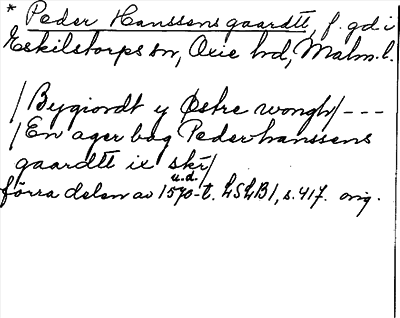 * Peder Hanssens gaardtt, f. gd. i
Eskilstorps sn, Oxie hd, Malm. l.
/Bygiordt y Østre wongh/ ---
/En ager bag Pederhanssens
gaardtt ix skr/
u.d.
förra delen av 1570-t. LSLB1, s. 417. orig.